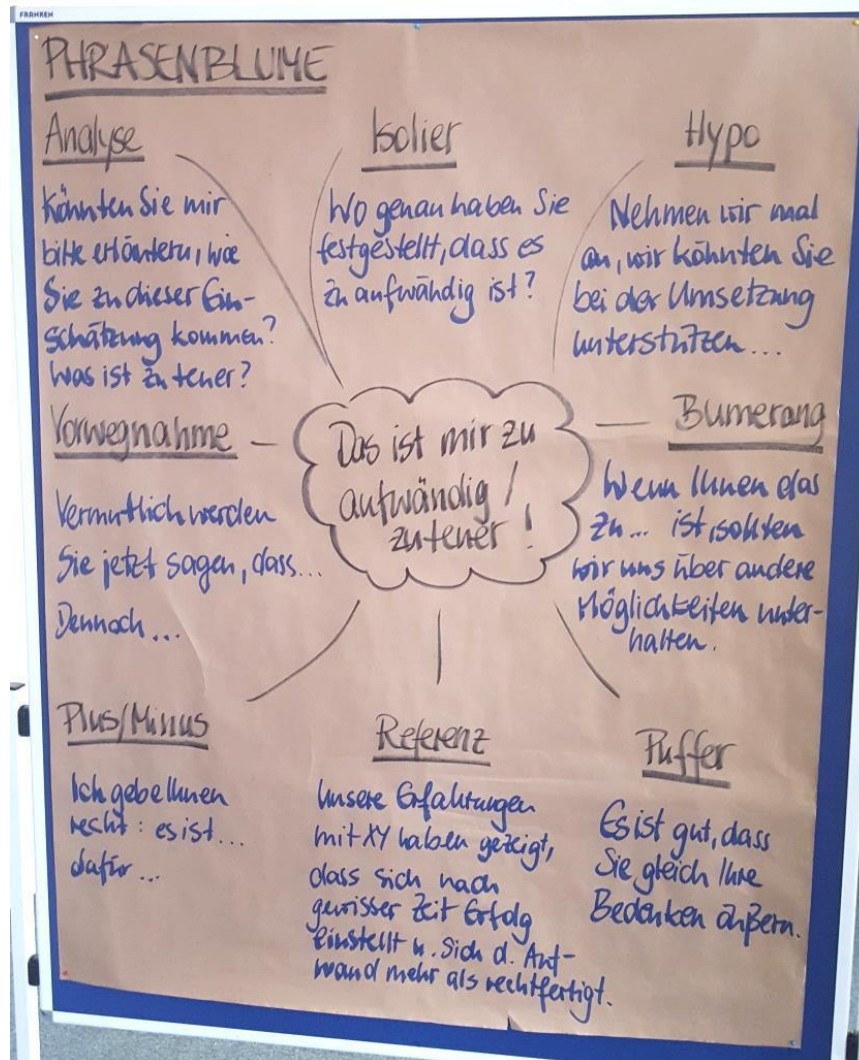 FRANKEN
PHRASENBLUME
Analyse
Könnten Sie mir
bitte erläutern, wie
Sie zu dieser Ein-
schätzung kommen?
Was ist zu teuer?
Isolier
Wo genau haben Sie
festgestellt, dass es
zu aufwändig ist?
Hypo
Nehmen wir mal
an, wir könnten Sie
bei der Umsetzung
unterstützen...
Vorwegnahme
Vermutlich werden
Sie jetzt sagen, dass...
Dennoch...
Das ist mir zu
aufwändig /
zu teuer!
Bumerang
Wenn Ihnen das
zu... ist, sollten
wir uns über andere
Möglichkeiten unter-
halten.
Plus/Minus
Ich gebe Ihnen
recht: es ist...
dafür...
Referenz
Unsere Erfahrungen
mit XY haben gezeigt,
dass sich nach
gewisser Zeit Erfolg
einstellt u. sich d. Auf-
wand mehr als rechtfertigt.
Puffer
Es ist gut, dass
Sie gleich Ihre
Bedenken äußern.